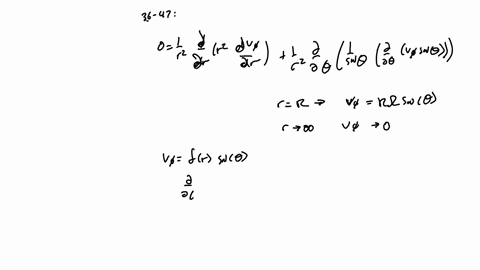 36-47:
0 = 1/r² d/dr (r² dvϕ/dr) + 1/r² ∂/∂θ (1/sinθ (∂/∂θ (vϕ sinθ)))
r = R ⇒ vϕ = RΩ sin(θ)
r → ∞ vϕ → 0
vϕ = f(r) sin(θ)
∂/∂r